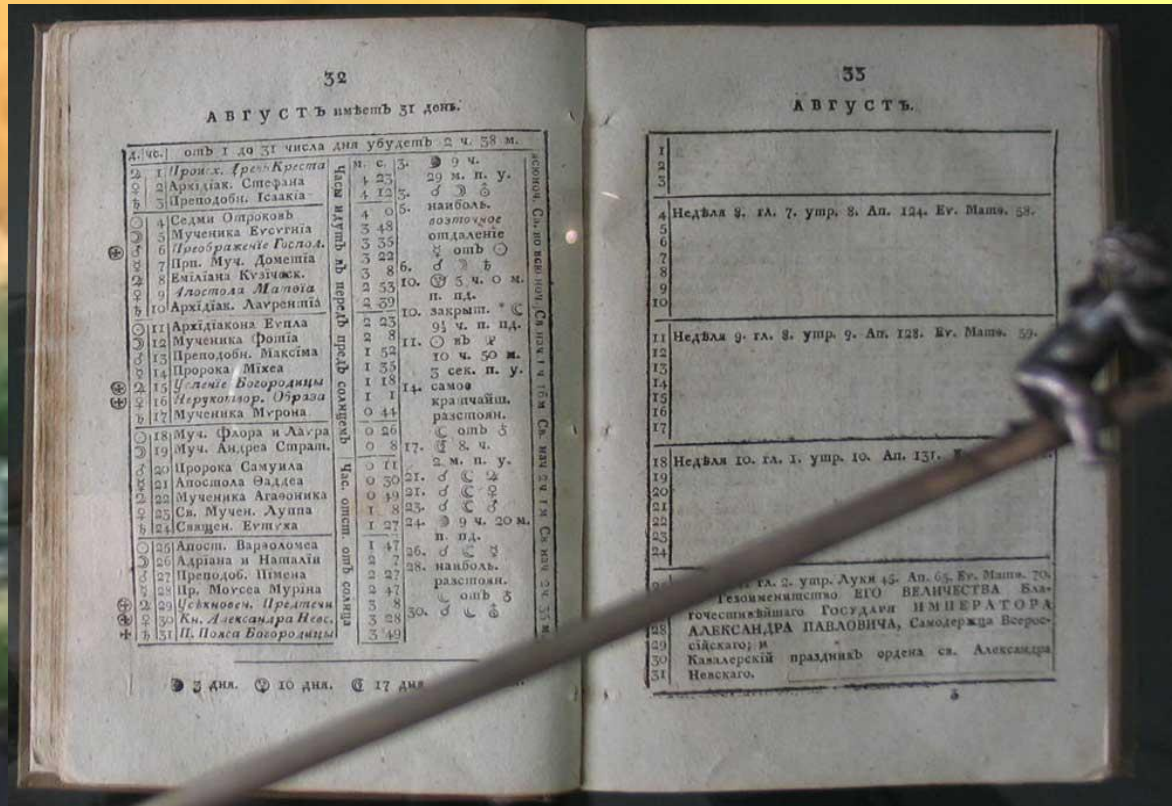 32
АВГУСТЪ имѣетъ 31 день.
д. чс. отъ 1 до 31 числа дня убудетъ 2 ч. 38 м.
♃ 1 Происх. Крестa
♀ 2 Архідіак. Стефана
♄ 3 Преподобн. Ісаакіа
☉ 4 Седми Отроковъ
☽ 5 Мученика Еѵсѵгніа
♂ 6 Преображеніе Господ.
☿ 7 Прп. Муч. Дометіа
♃ 8 Еміліана Кѵзіческ.
♀ 9 Апостола Матѳіа
♄ 10 Архідіак. Лаѵрентіа
☉ 11 Архідіакона Еѵпла
☽ 12 Мученика Фотіа
♂ 13 Преподобн. Максіма
☿ 14 Пророка Міхеа
♃ 15 Успеніе Богородицы
♀ 16 Нерукотвор. Образа
♄ 17 Мученика Мѵрона
☉ 18 Муч. Флора и Лаѵра
☽ 19 Муч. Андреа Страт.
♂ 20 Пророка Самуила
☿ 21 Апостола Ѳаддеа
♃ 22 Мученика Агаѳоника
♀ 23 Св. Мучен. Луппа
♄ 24 Священ. Еѵтѵха
☉ 25 Апост. Варѳоломеа
☽ 26 Адріана и Наталіи
♂ 27 Преподоб. Пімена
☿ 28 Пр. Моѵсеа Мурина
♃ 29 Усѣкновен. Предтечи
♀ 30 Кн. Александра Невс.
♄ 31 П. Пояса Богородицы
Часы идутъ въ передъ предъ солнцемъ
Час. отст. отъ солнца
м. с.
4 23
4 12
4 0
3 48
3 35
3 22
3 8
2 53
2 39
2 23
2 8
1 52
1 35
1 18
1 1
0 44
0 26
0 8
0 11
0 30
0 49
1 8
1 27
1 47
2 7
2 27
2 47
3 8
3 28
3 49
3. 9 ч.
29 м. п. у.
3. ♂ ☽ ♁
5. наиболь.
возточное
отдаленіе
☿ отъ ☉
6. ☌ ☽ ♄
10. 3 ч. 0 м.
п. пд.
10. закрыт. * ☾
9½ ч. п. пд.
11. ☉ въ
10 ч. 50 м.
3 сек. п. у.
14. самое
кратчайш.
разстоян.
☾ отъ ♁
17. 8. ч.
2 м. п. у.
21. ☌ ☾ ♃
21. ☌ ☾ ♀
23. ☌ ☾ ♂
24. 9 ч. 20 м.
п. пд.
26. ☌ ☾ ☿
28. наиболь.
разстоян.
☾ отъ ♁
30. ☌ ☾
3 дня. 10 дня. 17 дня
33
АВГУСТЪ.
1
2
3
4 Недѣля 8. гл. 7. утр. 8. Ап. 124. Еѵ. Матѳ. 58.
5
6
7
8
9
10
11 Недѣля 9. гл. 8. утр. 9. Ап. 128. Еѵ. Матѳ. 59.
12
13
14
15
16
17
18 Недѣля 10. гл. 1. утр. 10. Ап. 131.
19
20
21
22
23
24
гл. 2. утр. Луки 45. Ап. 65. Еѵ. Матѳ. 70.
Тезоименитство ЕГО ВЕЛИЧЕСТВА Бла-
гочестивѣйшаго ГОСУДАРЯ ИМПЕРАТОРА
28 АЛЕКСАНДРА ПАВЛОВИЧА, Самодержца Всерос-
29 сійскаго; и
30 Кавалерскій праздникъ ордена св. Александра
31 Невскаго.